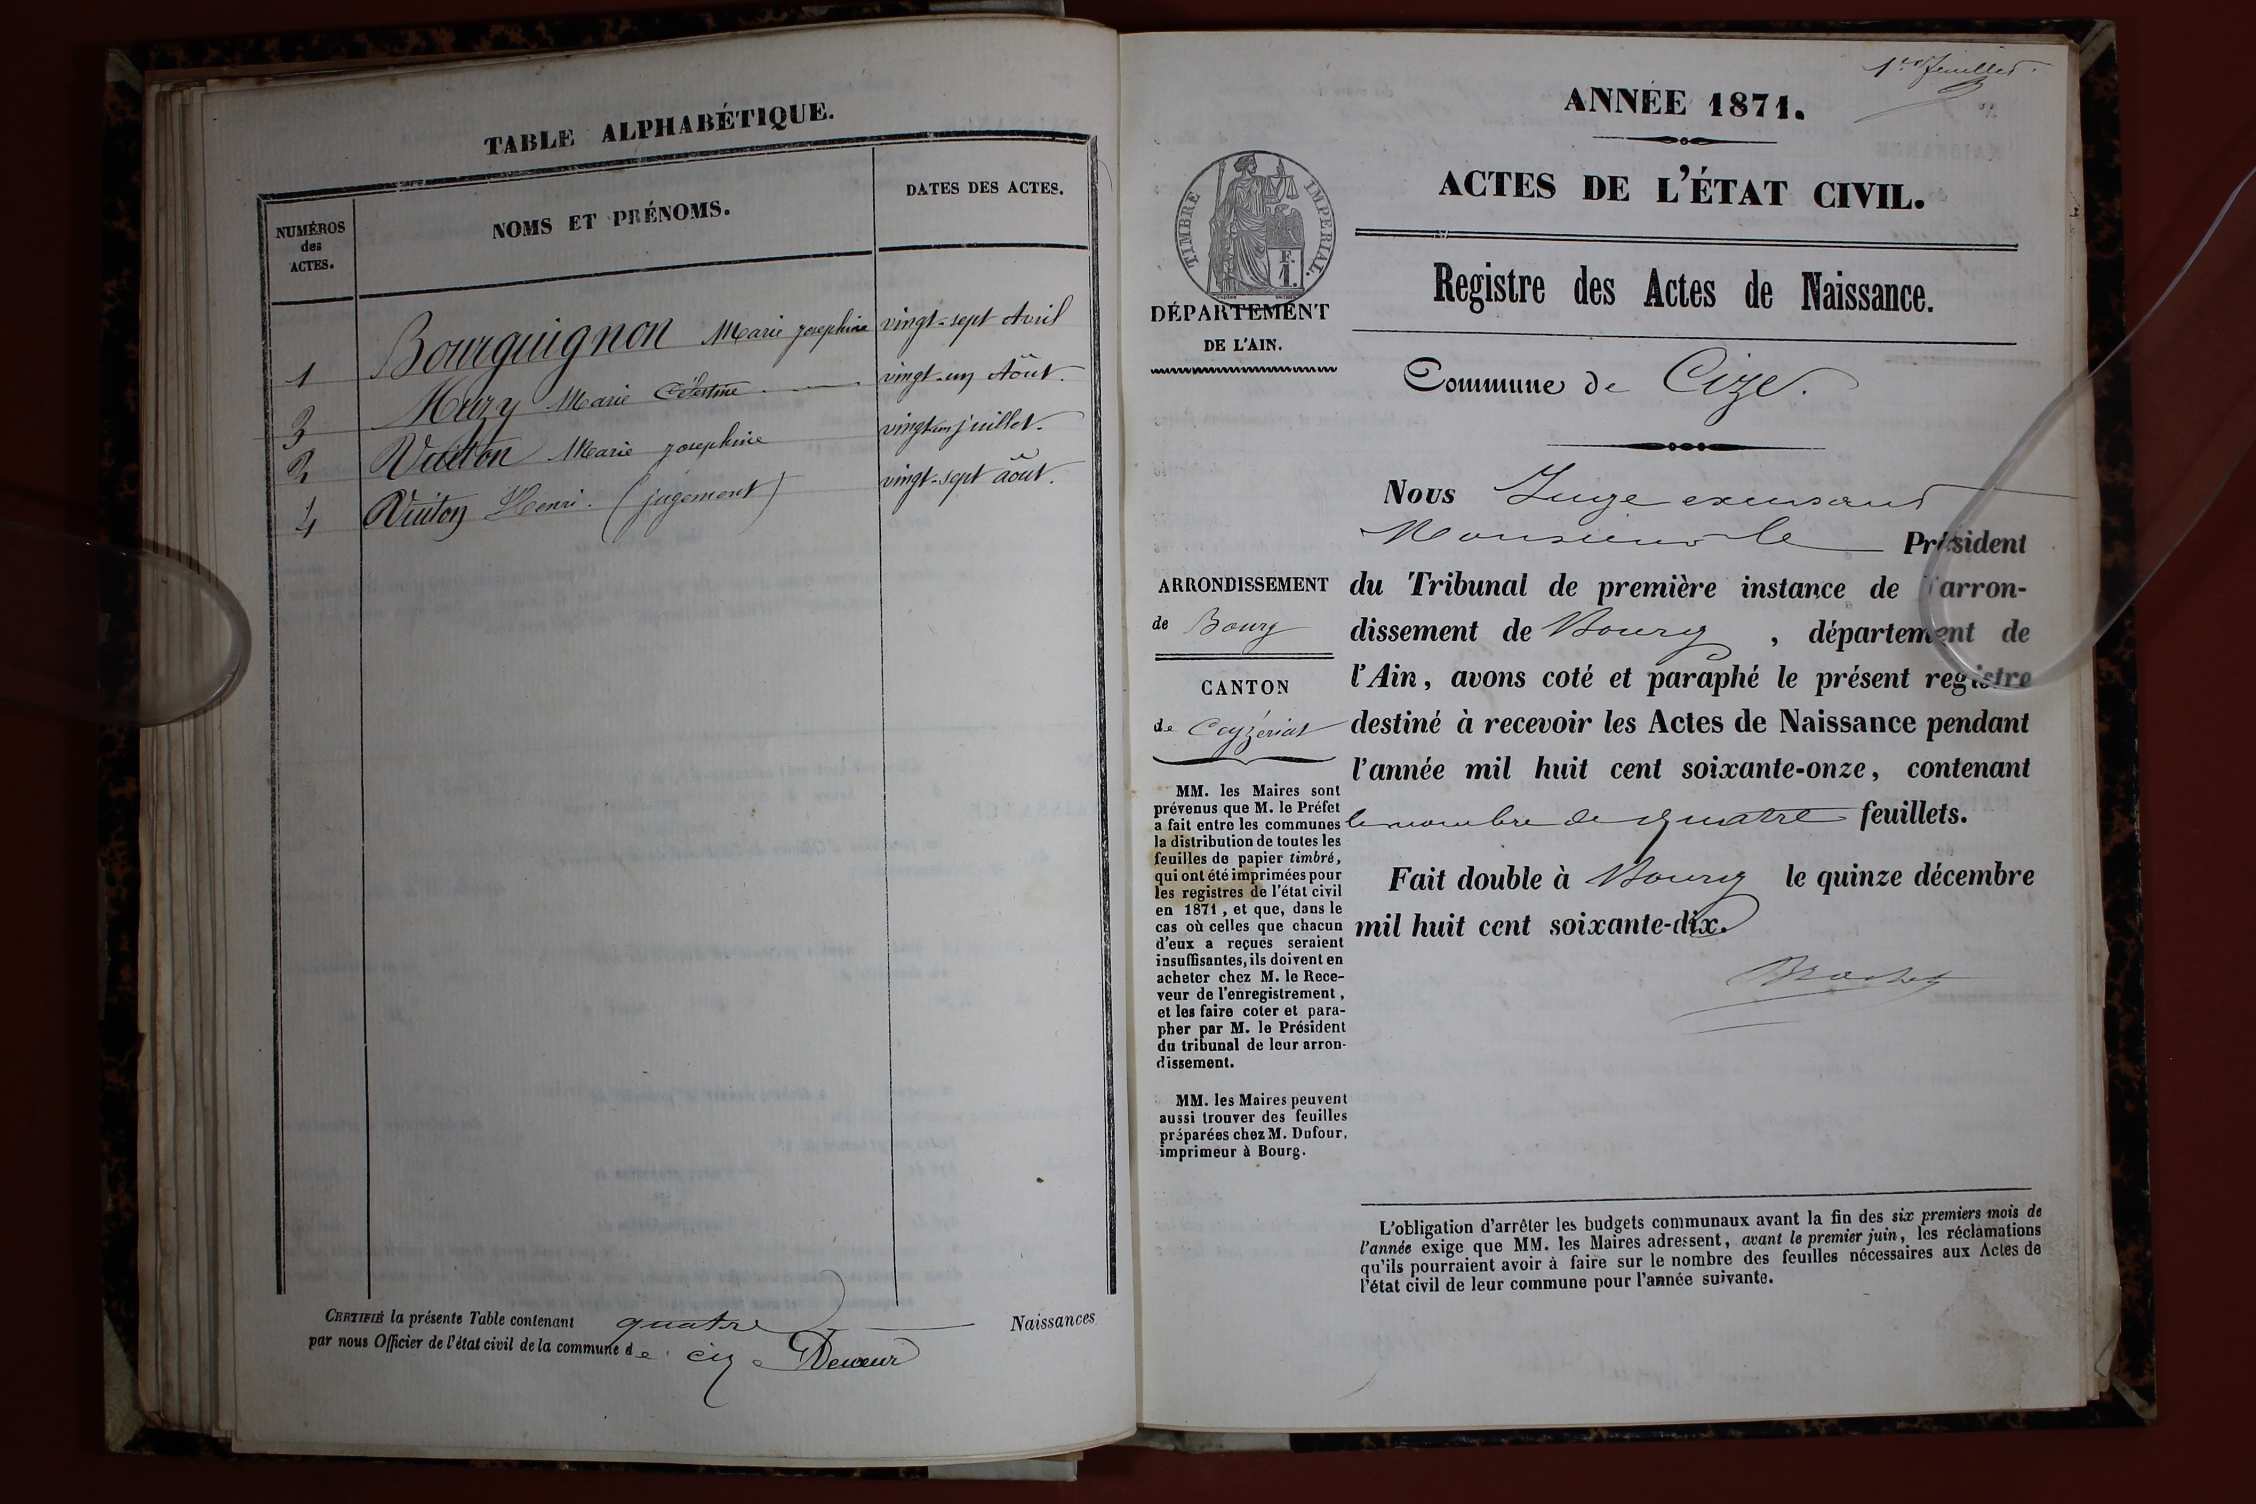 TABLE ALPHABÉTIQUE.
NUMÉROS
des
ACTES.
NOMS ET PRÉNOMS.
DATES DES ACTES.
1 Bourguignon Marie Josephine vingt-sept Avril
3 Mury Marie Célestine vingt-un Août.
2 Vuiton Marie Josephine vingt-un juillet.
4 Vuiton Henri. (jugement) vingt-sept août.
CERTIFIÉ la présente Table contenant quatre Naissances
par nous Officier de l'état civil de la commune de Cize
1er feuillet.
ANNÉE 1871.
ACTES DE L'ÉTAT CIVIL.
TIMBRE IMPERIAL.
F.
1.
DÉPARTEMENT
DE L'AIN.
Registre des Actes de Naissance.
Commune de Cize.
ARRONDISSEMENT
de Bourg
CANTON
de Ceyzériat
MM. les Maires sont
prévenus que M. le Préfet
a fait entre les communes
la distribution de toutes les
feuilles de papier timbré,
qui ont été imprimées pour
les registres de l'état civil
en 1871, et que, dans le
cas où celles que chacun
d'eux a reçues seraient
insuffisantes, ils doivent en
acheter chez M. le Rece-
veur de l'enregistrement,
et les faire coter et para-
pher par M. le Président
du tribunal de leur arron-
dissement.
MM. les Maires peuvent
aussi trouver des feuilles
préparées chez M. Dufour,
imprimeur à Bourg.
Nous Juge
Monsieur le Président
du Tribunal de première instance de l'arron-
dissement de Bourg, département de
l'Ain, avons coté et paraphé le présent registre
destiné à recevoir les Actes de Naissance pendant
l'année mil huit cent soixante-onze, contenant
le nombre de quatre feuillets.
Fait double à Bourg le quinze décembre
mil huit cent soixante-dix.
L'obligation d'arrêter les budgets communaux avant la fin des six premiers mois de
l'année exige que MM. les Maires adressent, avant le premier juin, les réclamations
qu'ils pourraient avoir à faire sur le nombre des feuilles nécessaires aux Actes de
l'état civil de leur commune pour l'année suivante.